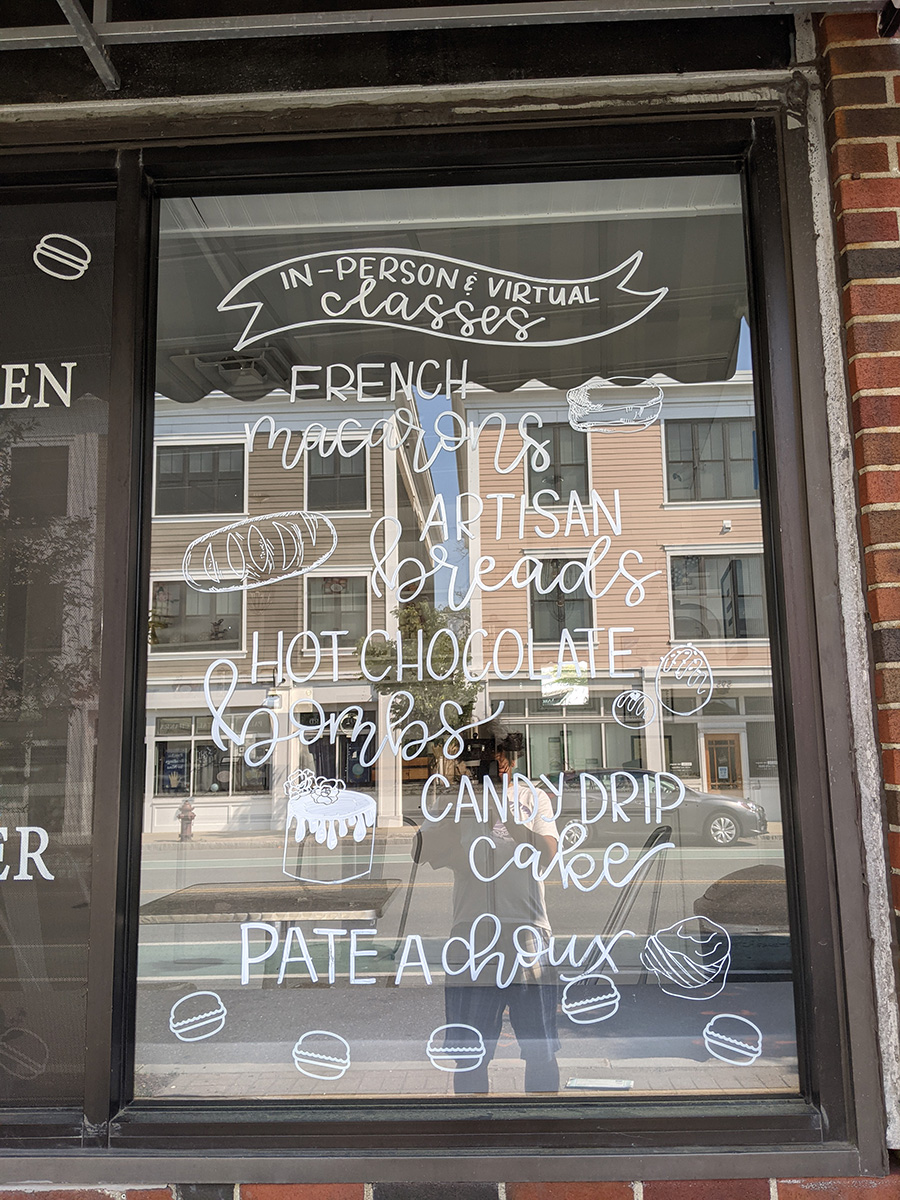 IN-PERSON & VIRTUAL
classes
FRENCH
macarons
EN
ARTISAN
& breads
HOT CHOCOLATE
& bombs
CANDY DRIP
cake
ER
PATE A choux